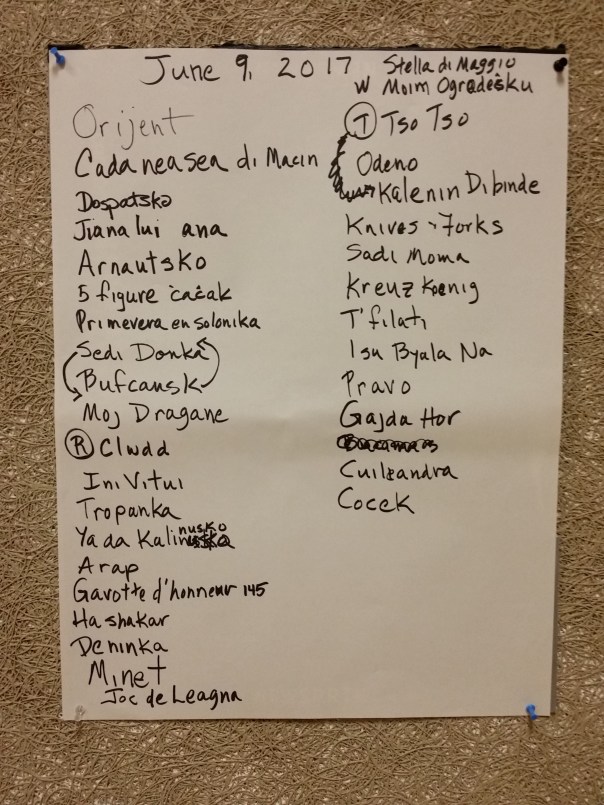 June 9, 2017
Stella di Maggio
w Moim Ogradešku
Orijent
Cadaneasea di Macin
Dospatsko
Jiana lui ana
Arnautsko
5 figure čačak
Primevera en solonika
Sedi Donka
Bufcansk
Moj Dragane
R Clwdd
Ini Vitui
Tropanka
Ya da Kalinusko
Arap
Gavotte d'honneur 145
Hashakar
Deninka
Minet
Joc de Leagna
T Tso Tso
Odeno
Kalenin Dibinde
Knives - Forks
Sadi Moma
Kreuz Koenig
T'filati
Isu Byala Na
Pravo
Gajda Hor
Cuileandra
Cocek